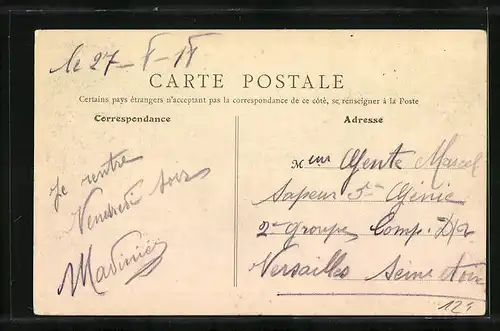 le 27-8-18
CARTE POSTALE
Certains pays étrangers n'acceptant pas la correspondance de ce côté, se renseigner à la Poste
Correspondance
Adresse
Je rentre
Vendredi soir
Mr Marcel
Sapeur 5e Génie
2e Groupe Comp. D/2
Versailles Seine et Oise